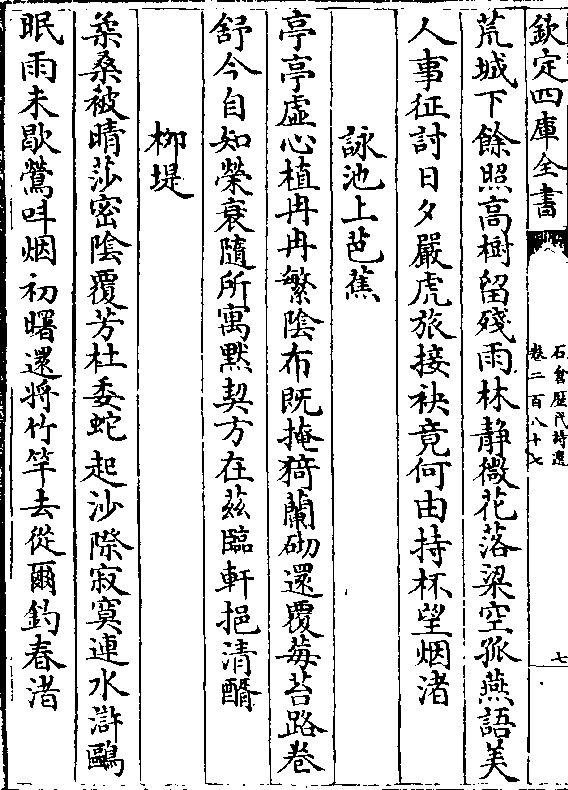 欽定四庫全書
石倉歴代詩選
卷二百八十七
七
荒城下餘照高樹留殘雨林静微花落梁空孤燕語美
人事征討日夕嚴虎旅接袂竟何由持杯望烟渚
詠池上芭蕉
亭亭虚心植冉冉繁陰布既掩猗蘭砌還覆莓苔路卷
舒今自知榮衰隨所寓黙契方在兹臨軒挹清醑
栁堤
葇桑被晴莎密陰覆芳杜委蛇起沙際寂寞連水滸鷗
眠雨未歇鶯呌烟初曙還將竹竿去從爾釣春渚